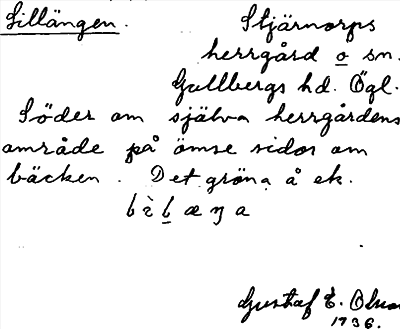 Lillängen. Stjärnorps
herrgård o sn.
Gullbergs hd. Ögl.
Söder om själva herrgårdens
område på ömse sidor om
bäcken. Det gröna å ek.
Gustaf E.
1936.